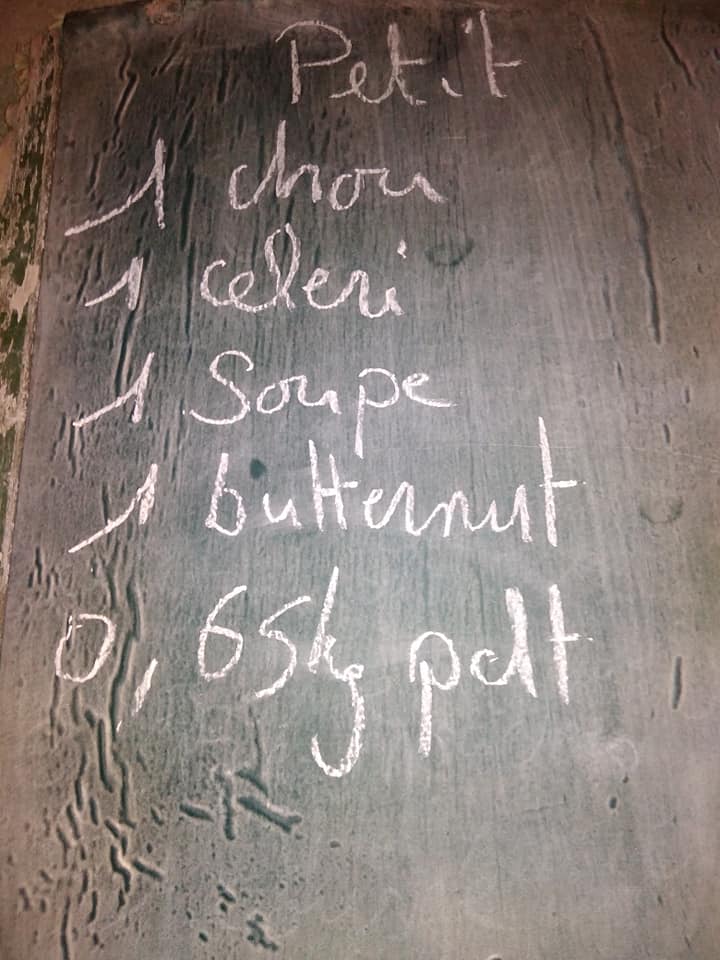 Petit
1 chou
1 celeri
1 Soupe
1 butternut
0,65kg pdt